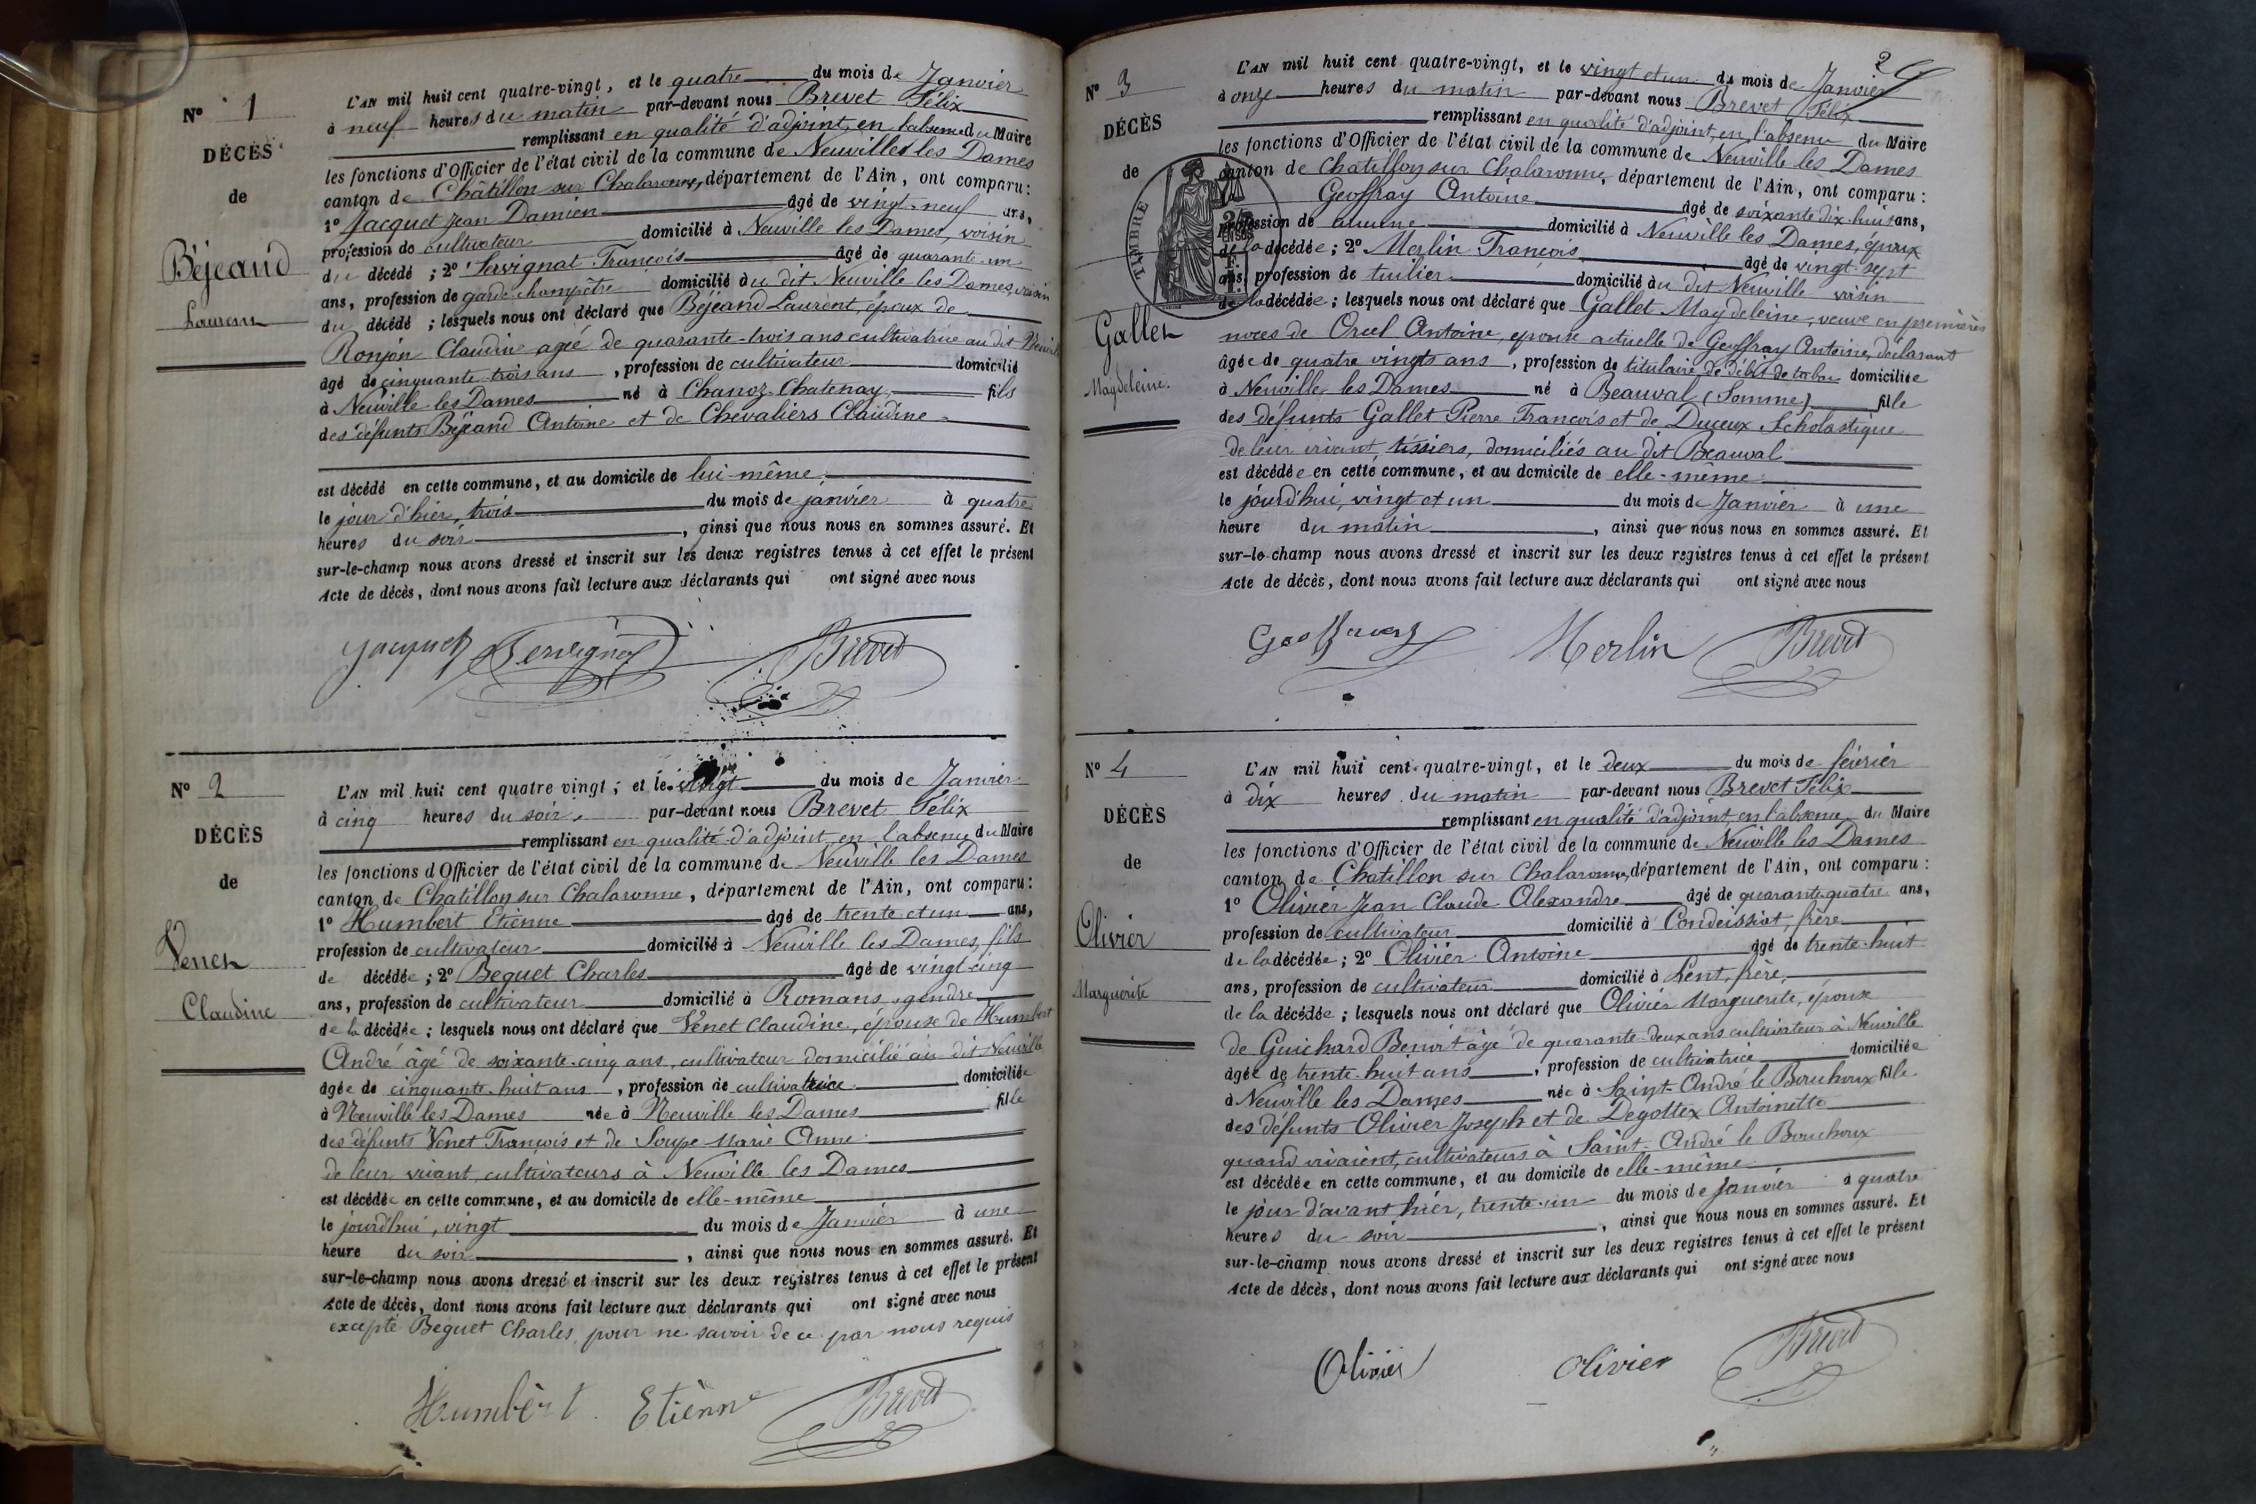 N° 1
DÉCÈS
de
Béjeand
Laurent
L'AN mil huit cent quatre-vingt, et le quatre du mois de Janvier
à neuf heures du matin par-devant nous Brevet Félix
remplissant en qualité d'adjoint, en l'absence du Maire
les fonctions d'Officier de l'état civil de la commune de Neuville les Dames
canton de Châtillon sur Chalaronne, département de l'Ain, ont comparu :
1° Jacquet Jean Damien âgé de vingt-neuf ans,
profession de cultivateur domicilié à Neuville les Dames, voisin
du décédé ; 2° Servignat François âgé de quarante-un
ans, profession de garde-champêtre domicilié au dit Neuville les Dames, voisin
du décédé ; lesquels nous ont déclaré que Béjeand Laurent, époux de
Ronjon Claudine agée de quarante-trois ans cultivatrice au dit Neuville
âgé de cinquante-trois ans, profession de cultivateur domicilié
à Neuville les Dames né à Chanoz-Chatenay fils
des défunts Béjeand Antoine et de Chevaliers Claudine
est décédé en cette commune, et au domicile de lui-même
le jour d'hier, trois du mois de janvier à quatre
heures du soir, ainsi que nous nous en sommes assuré. Et
sur-le-champ nous avons dressé et inscrit sur les deux registres tenus à cet effet le présent
Acte de décès, dont nous avons fait lecture aux déclarants qui ont signé avec nous
Jacquet Servignat Brevet
N° 2
DÉCÈS
de
Venet
Claudine
L'AN mil huit cent quatre vingt ; et le vingt du mois de Janvier
à cinq heures du soir par-devant nous Brevet Félix
remplissant en qualité d'adjoint, en l'absence du Maire
les fonctions d'Officier de l'état civil de la commune de Neuville les Dames
canton de Chatillon sur Chalaronne, département de l'Ain, ont comparu :
1° Humbert Etienne âgé de trente et un ans,
profession de cultivateur domicilié à Neuville les Dames, fils
de décédée ; 2° Beguet Charles âgé de vingt-cinq
ans, profession de cultivateur domicilié à Romans, gendre
de la décédée ; lesquels nous ont déclaré que Venet Claudine, épouse de Humbert
André âgé de soixante-cinq ans, cultivateur domicilié au dit Neuville
âgée de cinquante-huit ans, profession de cultivatrice domiciliée
à Neuville les Dames née à Neuville les Dames fille
des défunts Venet François et de Soupe Marie Anne
de leur vivant, cultivateurs à Neuville les Dames
est décédée en cette commune, et au domicile de elle-même
le jourd'hui, vingt du mois de Janvier à une
heure du soir, ainsi que nous nous en sommes assuré. Et
sur-le-champ nous avons dressé et inscrit sur les deux registres tenus à cet effet le présent
Acte de décès, dont nous avons fait lecture aux déclarants qui ont signé avec nous
excepté Beguet Charles, pour ne savoir de ce par nous requis
Humbert Etienne Brevet
2
N° 3
DÉCÈS
de
TIMBRE
Gallet
Magdeleine.
L'AN mil huit cent quatre-vingt, et le vingt et un du mois de Janvier
à onze heures du matin par-devant nous Brevet Félix
remplissant en qualité d'adjoint, en l'absence du Maire
les fonctions d'Officier de l'état civil de la commune de Neuville les Dames
canton de Chatillon sur Chalaronne, département de l'Ain, ont comparu :
Geoffray Antoine âgé de soixante dix-huit ans,
profession de aucune domicilié à Neuville les Dames, époux
de la décédée ; 2° Merlin François âgé de vingt-sept
ans, profession de tuilier domicilié au dit Neuville voisin
de la décédée ; lesquels nous ont déclaré que Gallet Magdeleine, veuve en premières
noces de Orcel Antoine, épouse actuelle de Geoffray Antoine, déclarant
âgée de quatre vingts ans, profession de titulaire de débit de tabac domiciliée
à Neuville les Dames né à Beauval (Somme) fille
des défunts Gallet Pierre François et de Duceux Scholastique
de leur vivant, tissiers, domiciliés au dit Beauval
est décédée en cette commune, et au domicile de elle-même
le jourd'hui, vingt et un du mois de Janvier à une
heure du matin, ainsi que nous nous en sommes assuré. Et
sur-le-champ nous avons dressé et inscrit sur les deux registres tenus à cet effet le présent
Acte de décès, dont nous avons fait lecture aux déclarants qui ont signé avec nous
Merlin Brevet
N° 4
DÉCÈS
de
Olivier
Marguerite
L'AN mil huit cent quatre-vingt, et le deux du mois de février
à dix heures du matin par-devant nous Brevet Félix
remplissant en qualité d'adjoint, en l'absence du Maire
les fonctions d'Officier de l'état civil de la commune de Neuville les Dames
canton de Chatillon sur Chalaronne, département de l'Ain, ont comparu :
1° Olivier Jean Claude Alexandre âgé de quarante-quatre ans,
profession de cultivateur domicilié à Condeissiat, frère
de la décédée ; 2° Olivier Antoine âgé de trente-huit
ans, profession de cultivateur domicilié à Lent, frère,
de la décédée ; lesquels nous ont déclaré que Olivier Marguerite, épouse
de Guichard Benoît âgé de quarante-deux ans cultivateur à Neuville
âgée de trente-huit ans, profession de cultivatrice domiciliée
à Neuville les Dames née à Saint-André le Bouchoux fille
des défunts Olivier Joseph et de Degottex Antoinette
quand vivaient, cultivateurs à Saint-André le Bouchoux
est décédée en cette commune, et au domicile de elle-même
le jour d'avant hier, trente-un du mois de Janvier à quatre
heures du soir, ainsi que nous nous en sommes assuré. Et
sur-le-champ nous avons dressé et inscrit sur les deux registres tenus à cet effet le présent
Acte de décès, dont nous avons fait lecture aux déclarants qui ont signé avec nous
Olivier Olivier Brevet